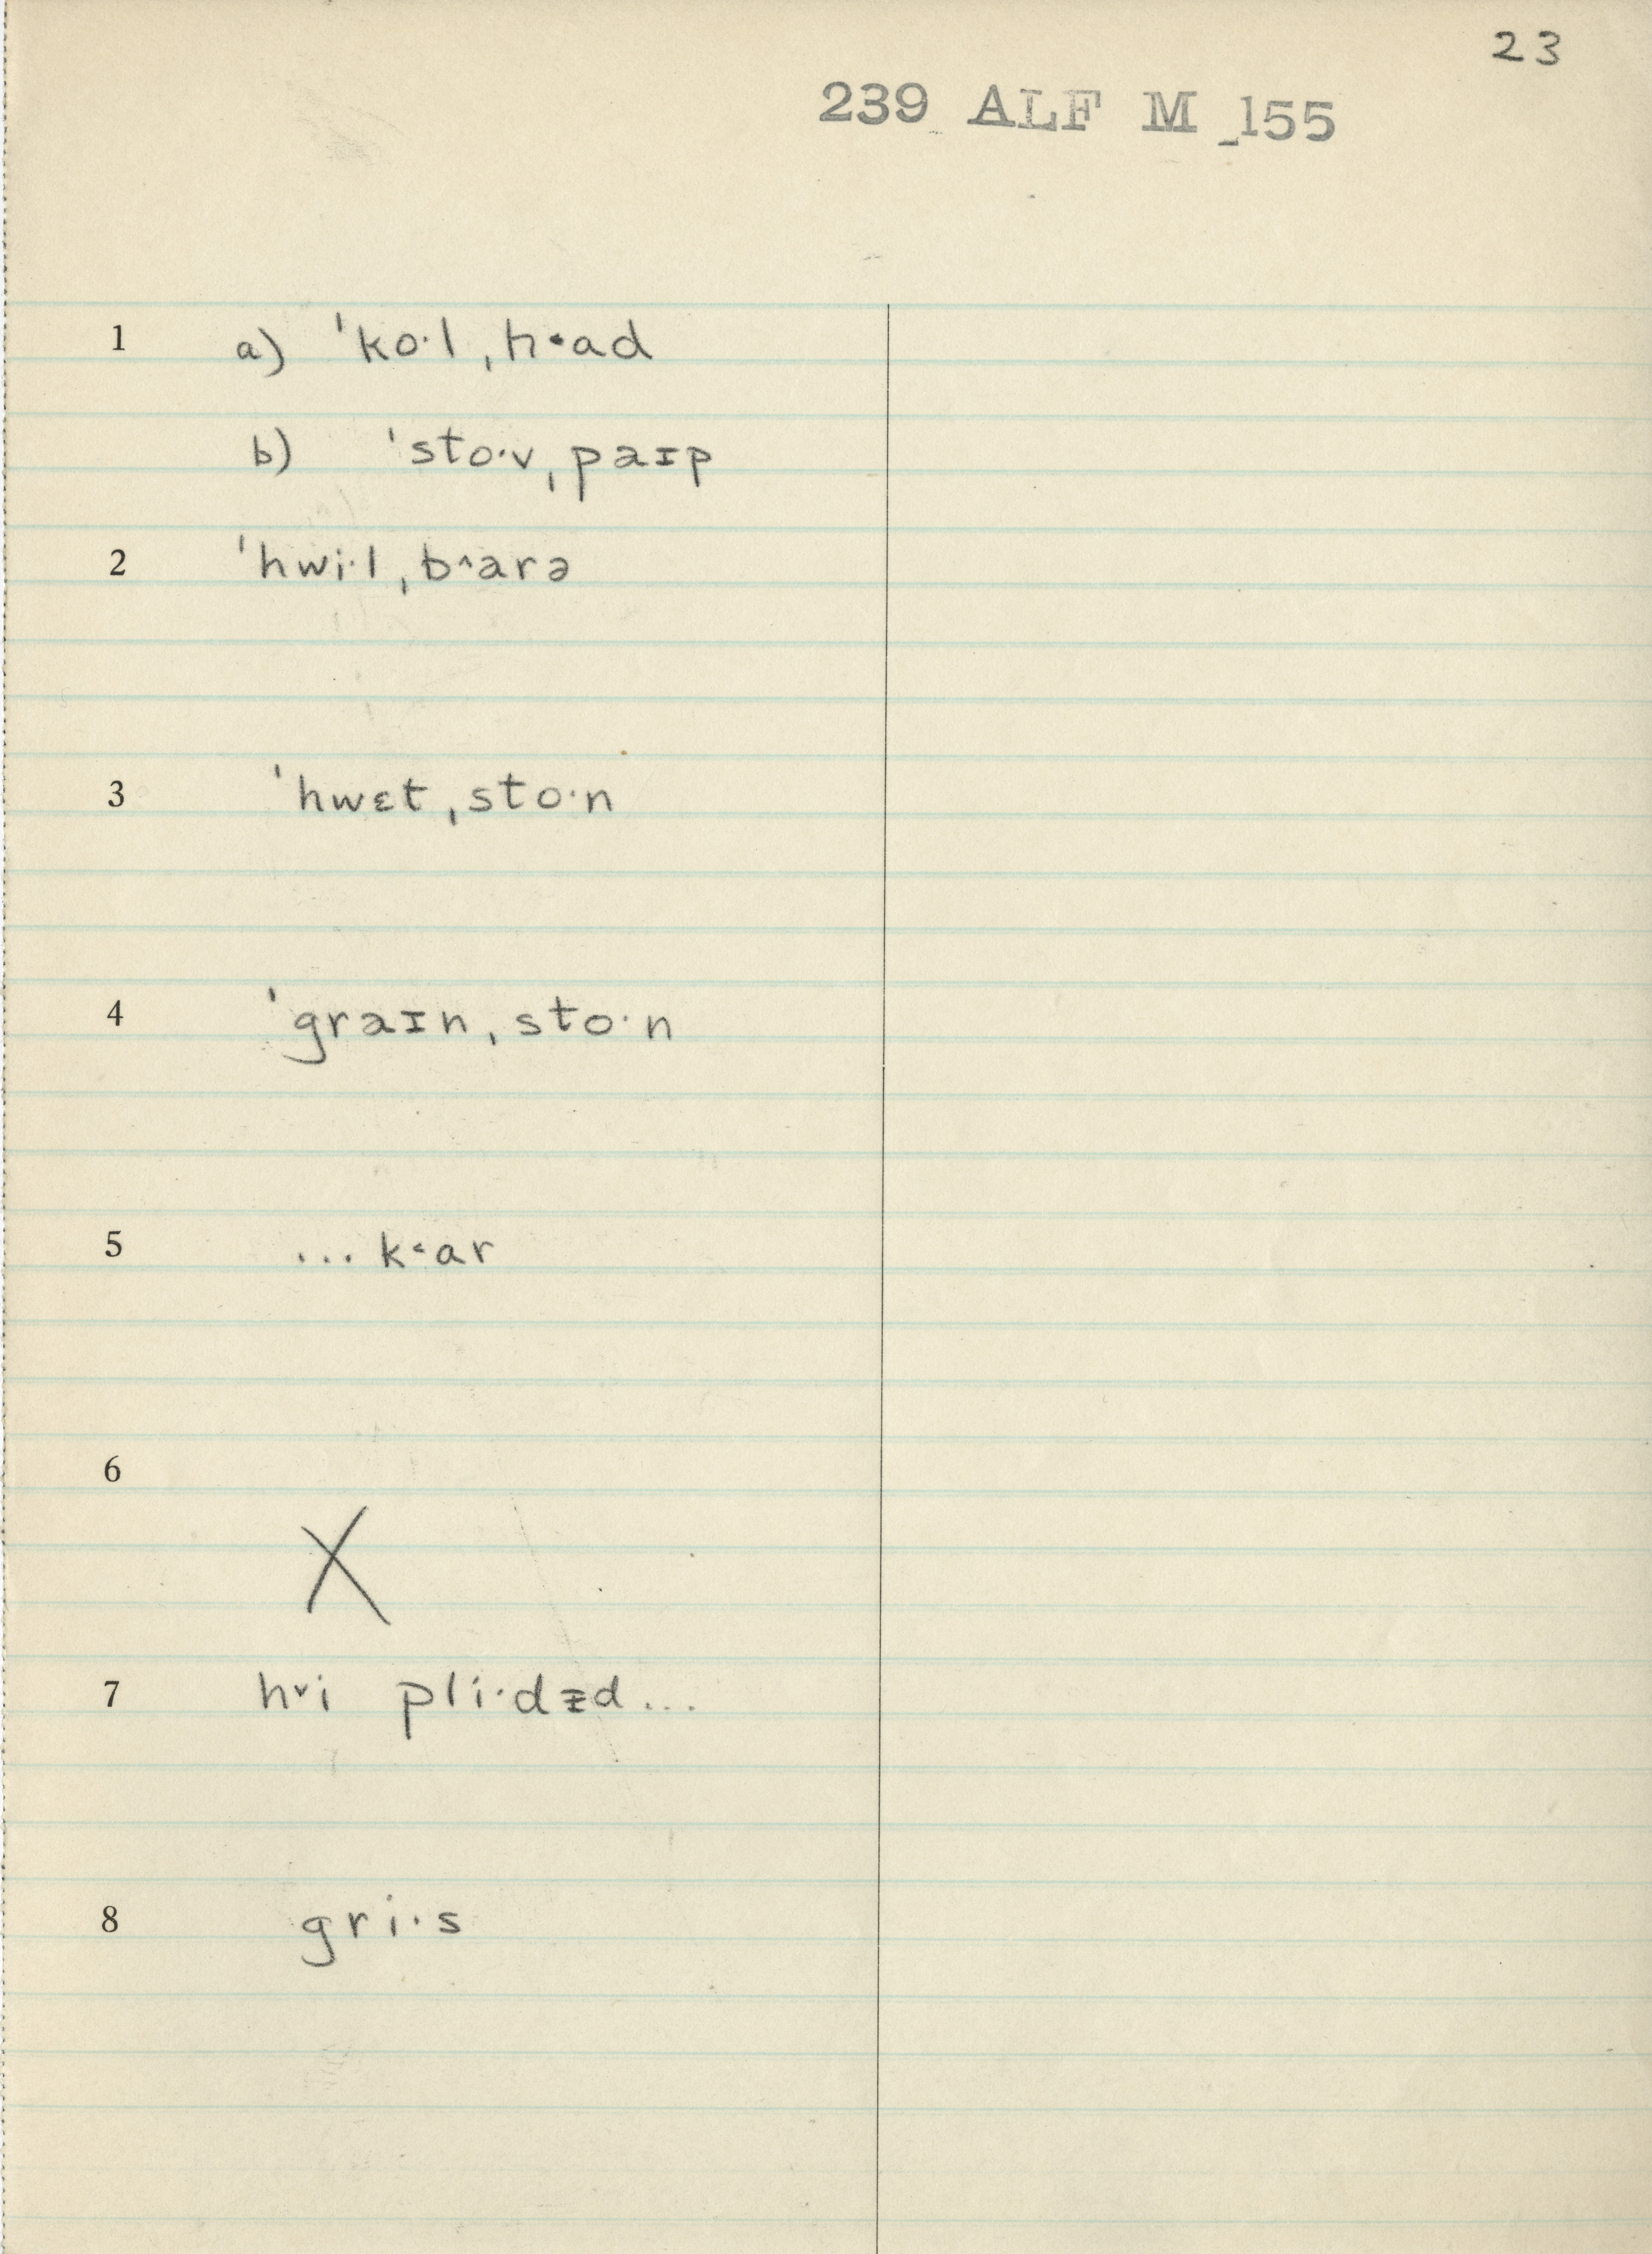 23
239 ALF M 155
1 a) ˈko·l ˌh˂ad
b) ˈsto·v ˌpaɪp
2 ˈhwi·l ˌb^arə
3 ˈhwɛt ˌsto·n
4 ˈgraɪn ˌsto·n
5 ... k˂ar
6 X
7 h˅i pli·dᵻd ...
8 gri·s